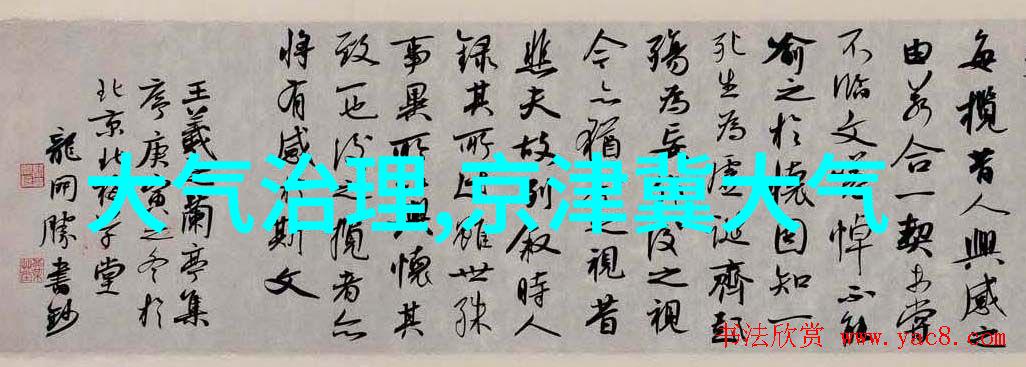 每攬昔人興感之
由若合一契未嘗
不臨文嗟悼不能
喻之於懷固知一
死生為虛誕齊彭
殤為妄後之視
今亦猶之視昔
悲夫故列敘時人
錄其所雖世殊
事異所興懷其
致一也後之攬者亦
將有感於斯文
王羲之蘭亭集
序庚寅之冬於
北京北子堂
龍開勝書鈔
大气治理,京津冀大气
书法欣赏 www.yac8.com